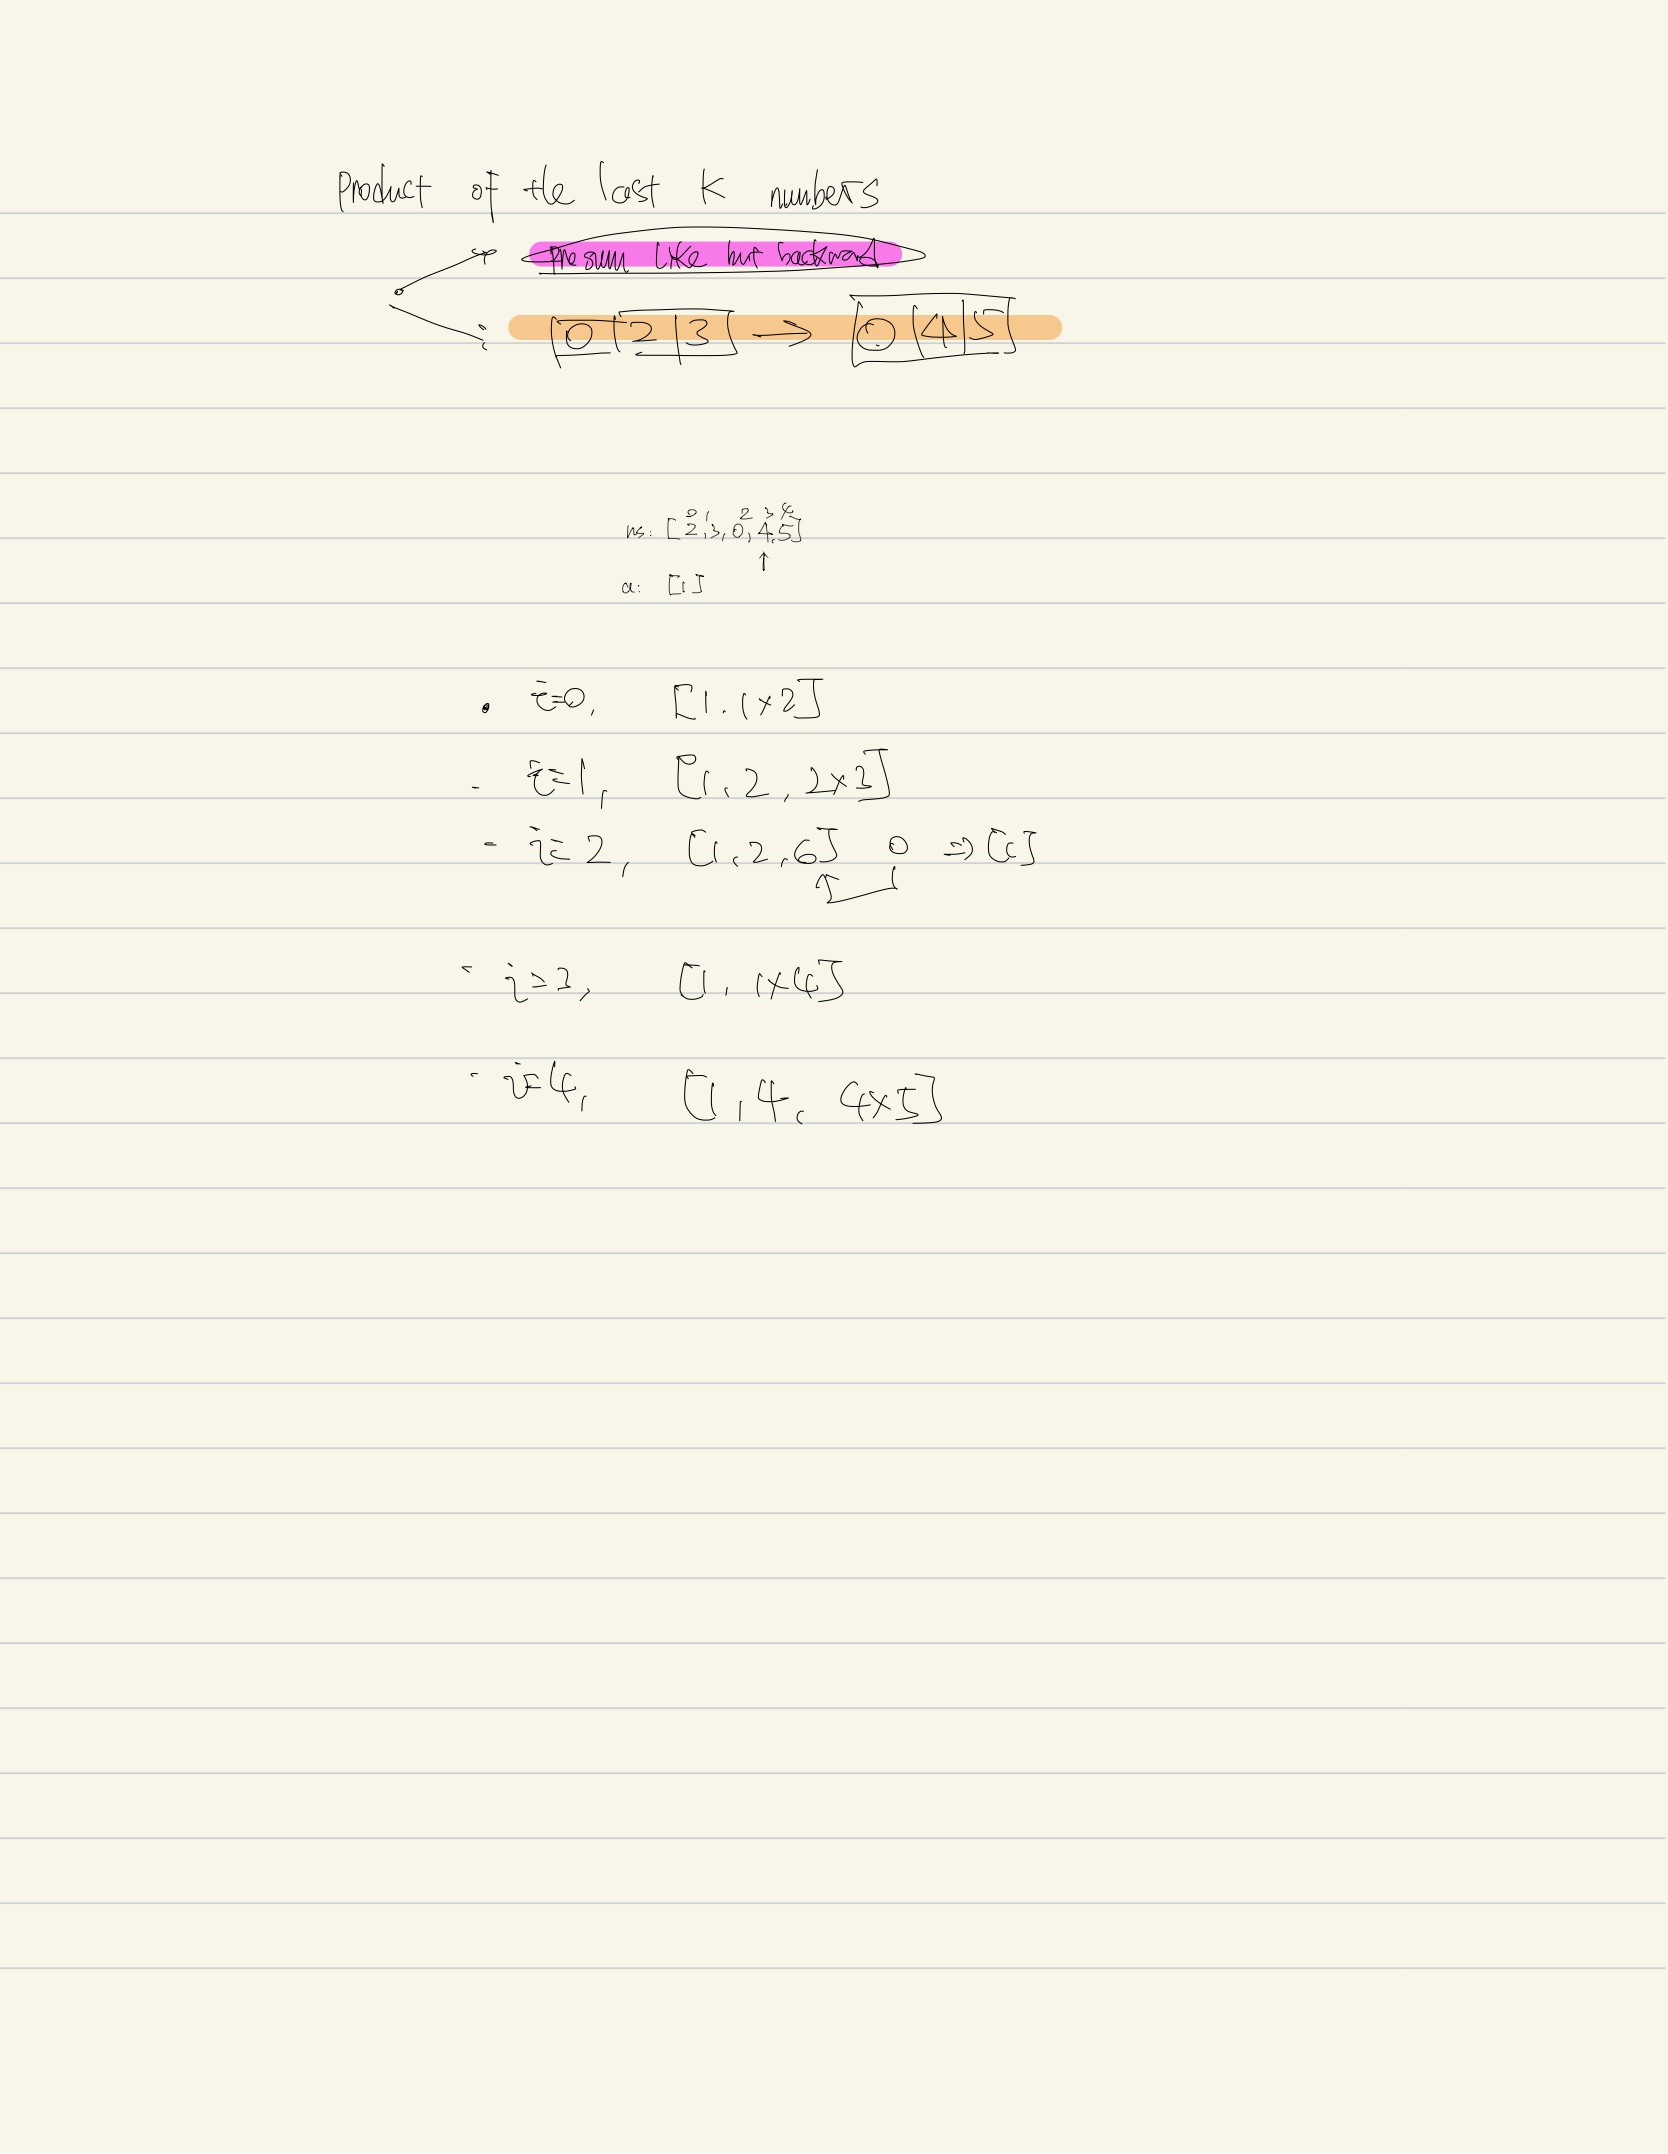 Product of the last K numbers
presum like but backward
0 | 2 | 3 → 0 | 4 | 5
0 1 2 3 4
ns: [2,3,0,4,5]
↑
a: [1]
• i=0, [1, 1×2]
- i=1, [1, 2, 2×3]
- i=2, [1, 2, 6] 0 ⇒ [1]
- i=3, [1, 1×4]
- i=4, [1, 4, 4×5]